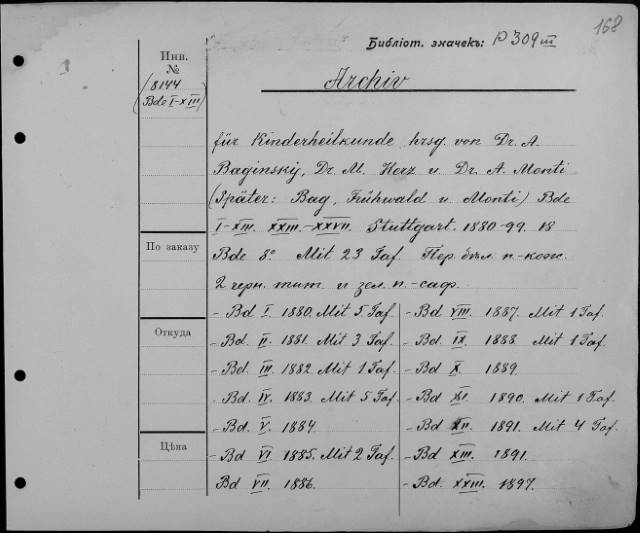 168
Библіот. значекъ: P 309 III
Инв.
№
8144
(Bde I-XIII)
Archiv
für Kinderheilkunde hrsg. von Dr. A.
Baginskij, Dr. M. Herz u Dr. A. Monti
(Später: Bag, Frühwald u Monti) Bde
I-XIII. XXIII.-XXVII. Stuttgart. 1880-99. 18
По заказу
Bde 8° Mit 23 Taf. Пер. бѣл. п.-кож.
2 черн. тит. и зел. п.-саф.
- Bd I. 1880. Mit 5 Taf.
- Bd. II. 1881. Mit 3 Taf.
- Bd. III. 1882. Mit 1 Taf.
- Bd. IV. 1883. Mit 5 Taf.
- Bd. V. 1884.
- Bd VI. 1885. Mit 2 Taf.
Bd VII. 1886.
- Bd VIII. 1887. Mit 1 Taf.
- Bd. IX. 1888. Mit 1 Taf.
- Bd X. 1889.
- Bd XI. 1890. Mit 1 Taf.
- Bd XII. 1891. Mit 4 Taf.
- Bd XIII. 1891.
- Bd. XXIII. 1897.
Откуда
Цѣна